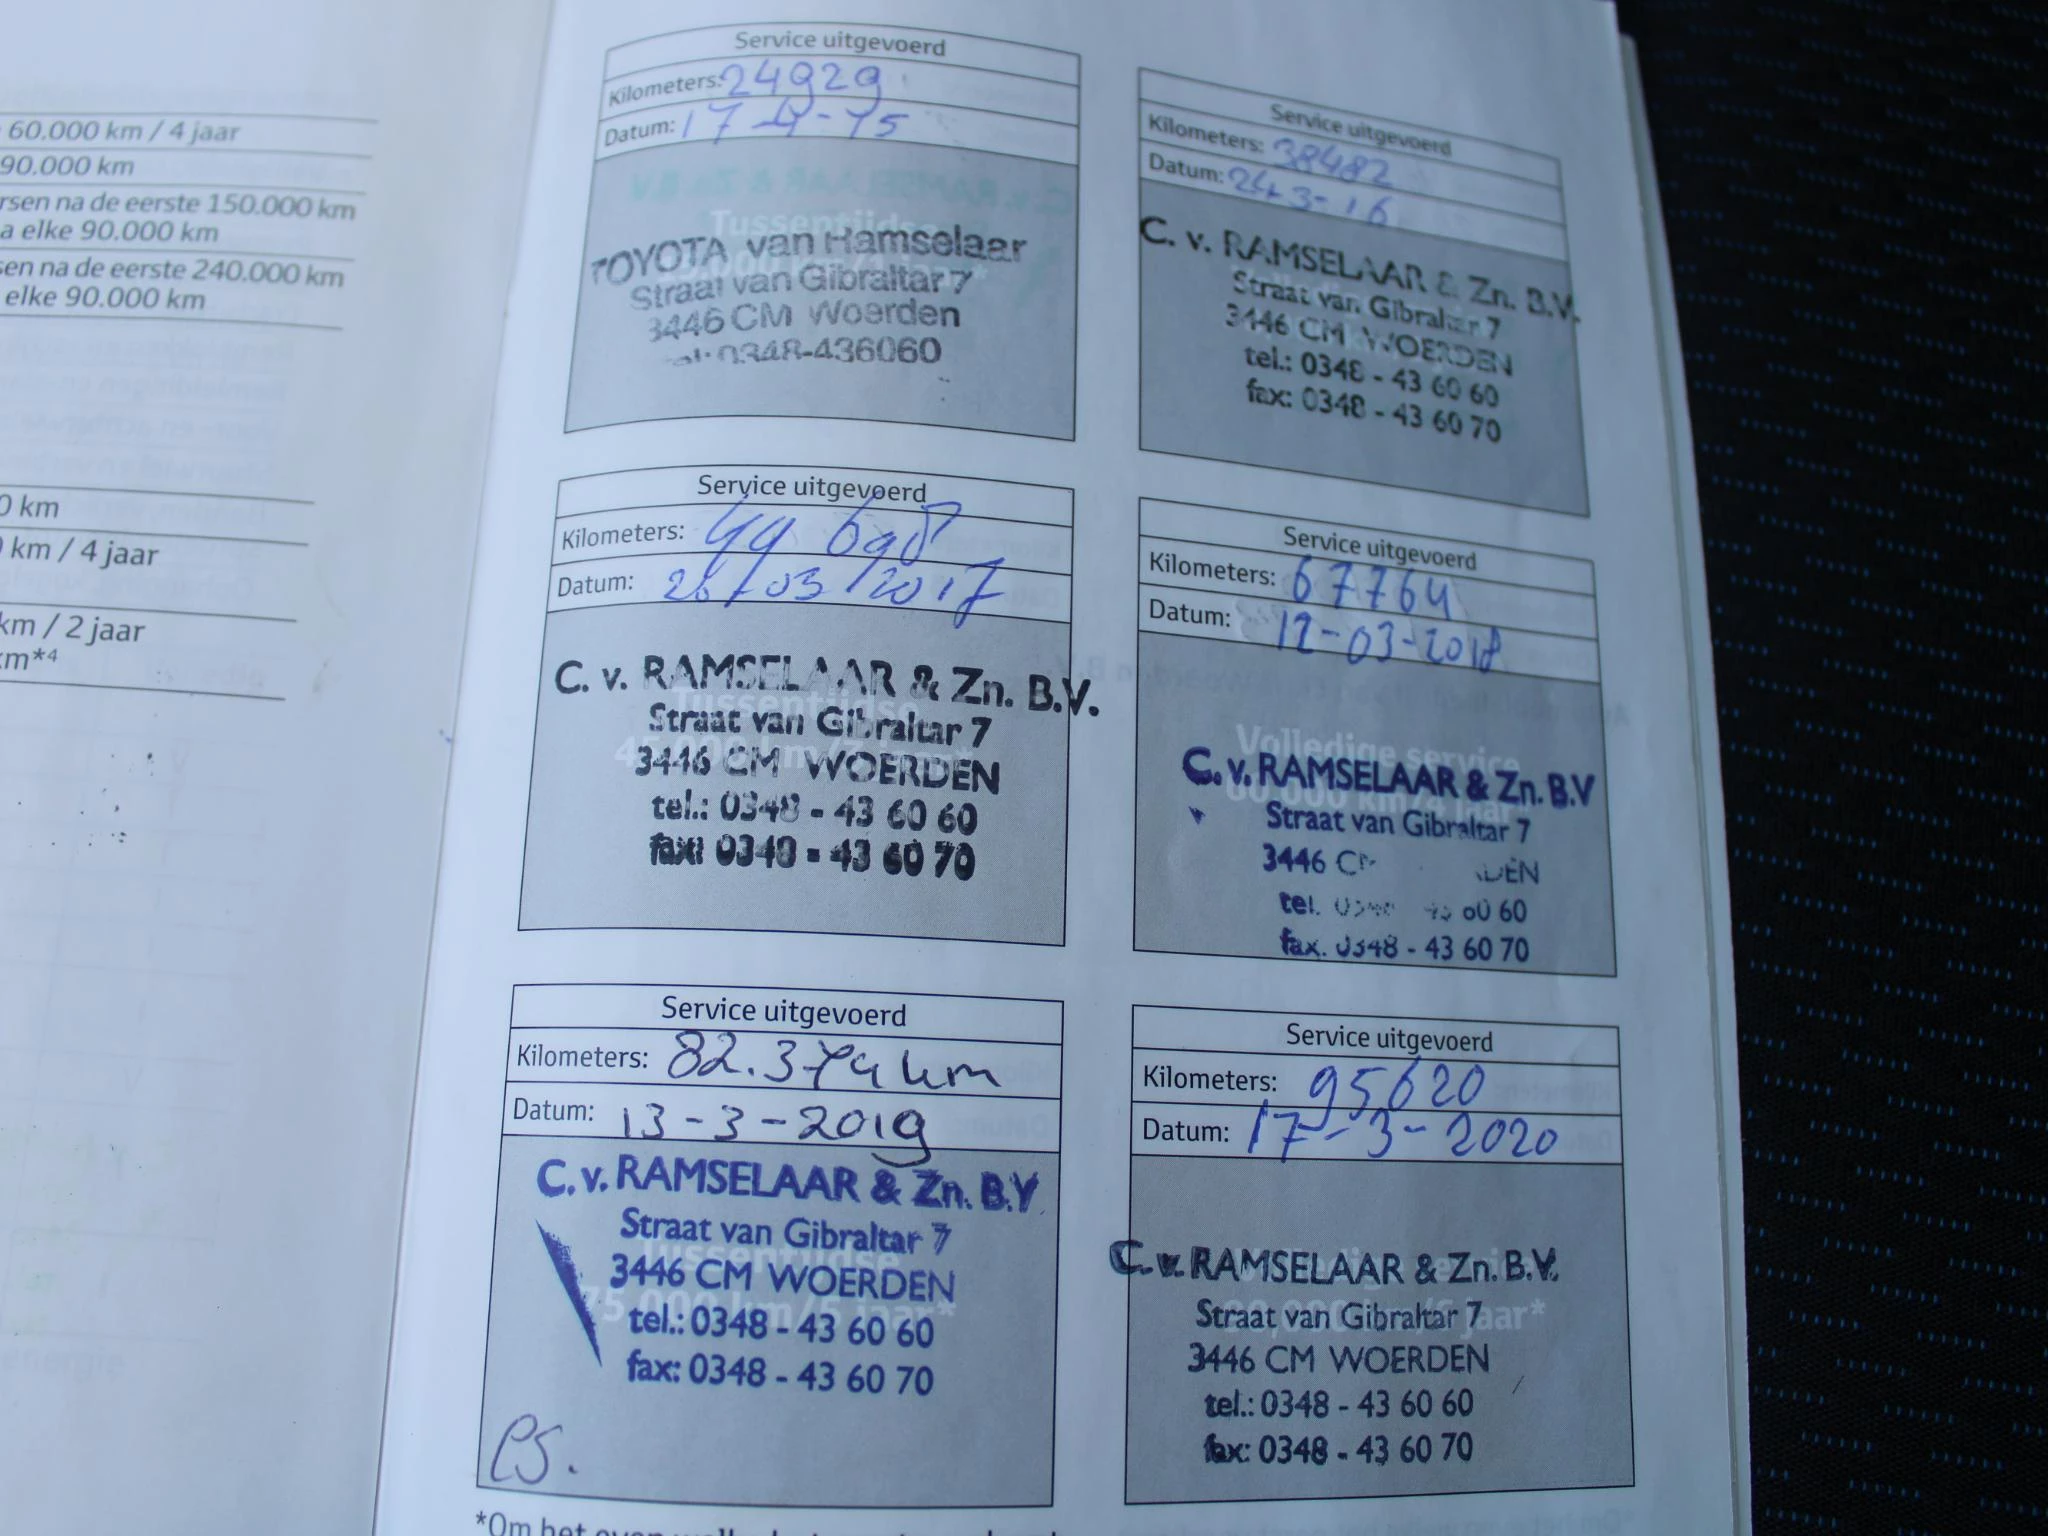 60.000 km / 4 jaar
90.000 km
rsen na de eerste 150.000 km
a elke 90.000 km
sen na de eerste 240.000 km
elke 90.000 km
0 km
0 km / 4 jaar
km / 2 jaar
km*4
Service uitgevoerd
Kilometers: 24929
Datum: 17-4-15
Tussentijdse
TOYOTA van Ramselaar
Straat van Gibraltar 7
3446 CM Woerden
tel: 0348-436060
Service uitgevoerd
Kilometers: 38482
Datum: 24-3-16
C. v. RAMSELAAR & Zn. B.V.
Straat van Gibraltar 7
3446 CM WOERDEN
tel.: 0348 - 43 60 60
fax: 0348 - 43 60 70
Service uitgevoerd
Kilometers:
Datum: 28/03/2017
C. v. RAMSELAAR & Zn. B.V.
Tussentijdse
Straat van Gibraltar 7
45.000 km/3 jaar*
3446 CM WOERDEN
tel.: 0348 - 43 60 60
fax: 0348 - 43 60 70
Service uitgevoerd
Kilometers: 67764
Datum: 12-03-2018
Volledige service
C. v. RAMSELAAR & Zn. B.V
60.000 km/4 jaar
Straat van Gibraltar 7
3446 CM WOERDEN
tel. 0348 43 60 60
fax. 0348 - 43 60 70
Service uitgevoerd
Kilometers: 82.379 km
Datum: 13-3-2019
C. v. RAMSELAAR & Zn. B.V.
Straat van Gibraltar 7
Tussentijdse
3446 CM WOERDEN
75.000 km/5 jaar*
tel.: 0348 - 43 60 60
fax: 0348 - 43 60 70
Service uitgevoerd
Kilometers: 95620
Datum: 17-3-2020
C. v. RAMSELAAR & Zn. B.V.
Volledige service
Straat van Gibraltar 7
90.000 km/6 jaar*
3446 CM WOERDEN
tel.: 0348 - 43 60 60
fax: 0348 - 43 60 70
*Om het even